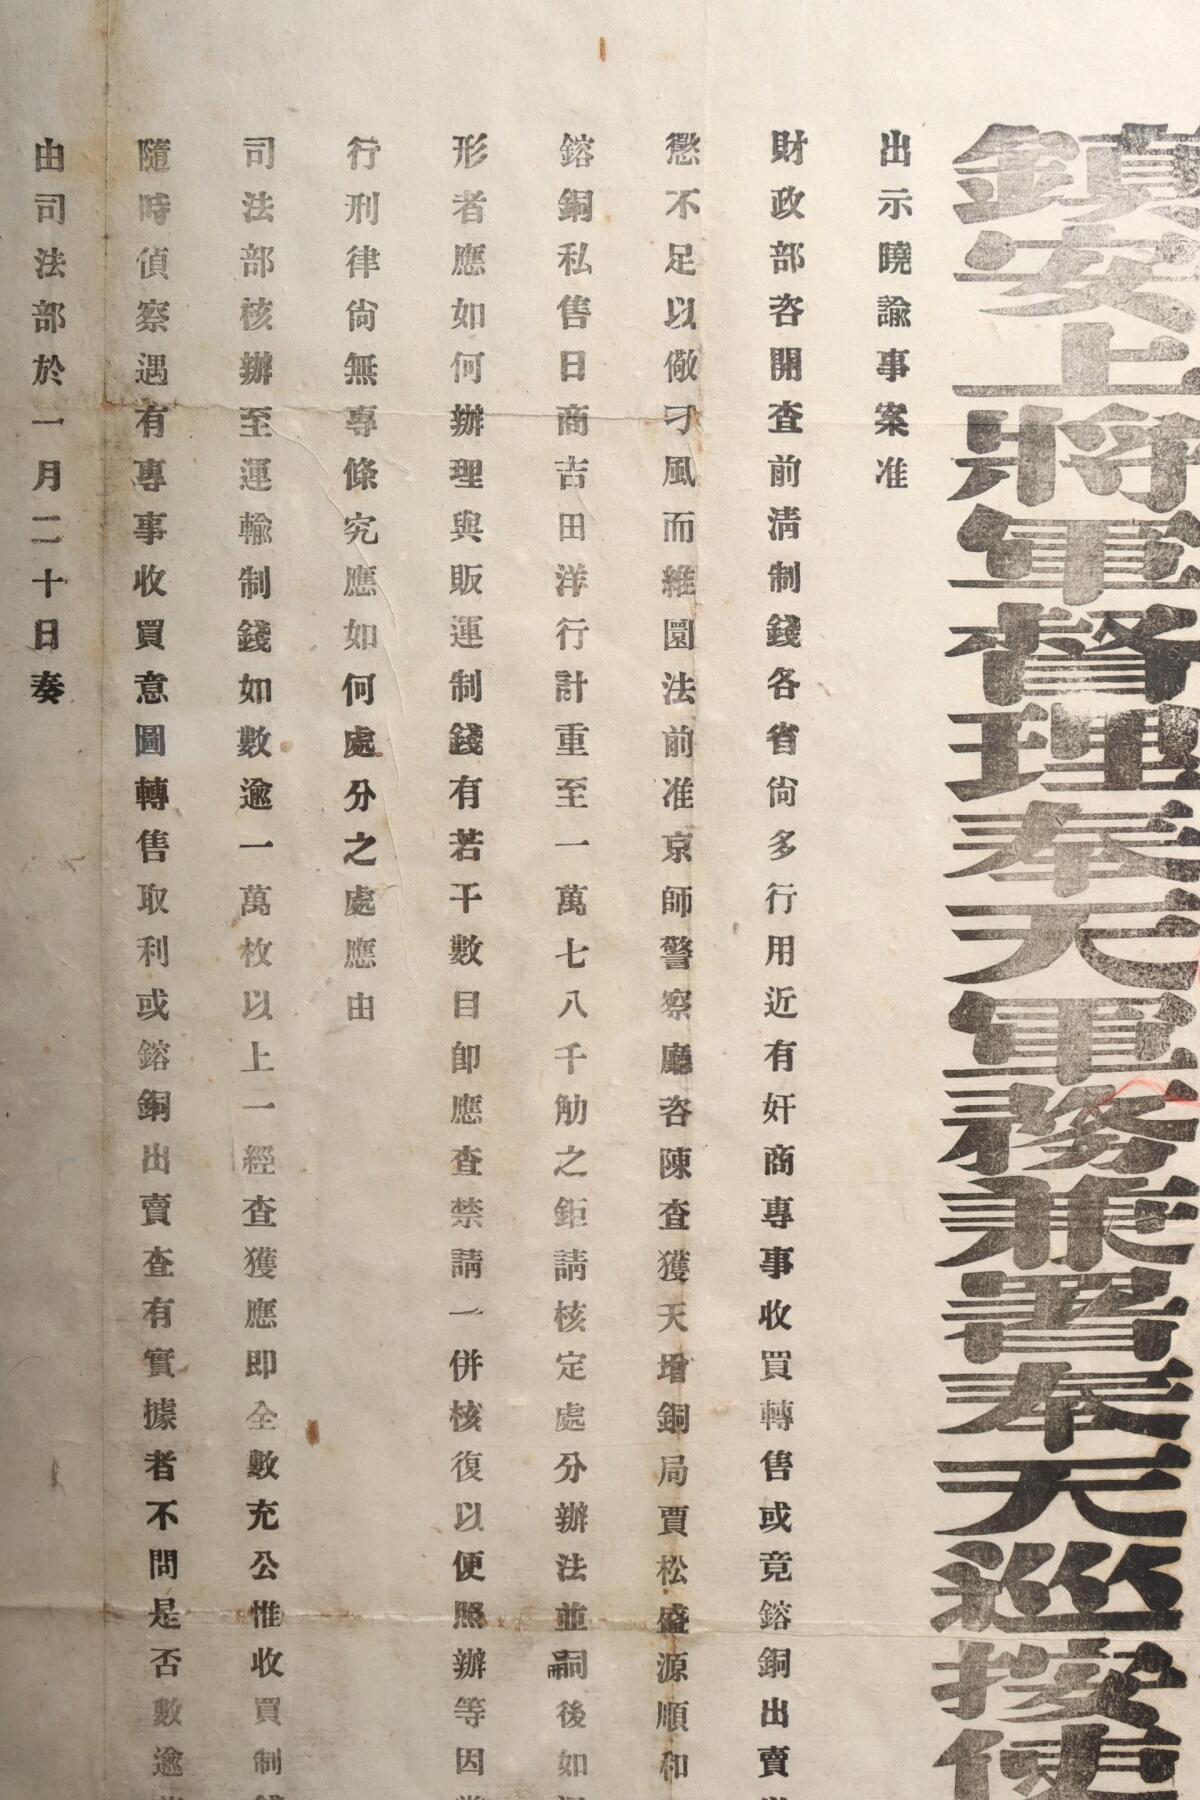 鎮安上將軍督理奉天軍務兼署奉天巡按使
出示曉諭事案准
財政部咨開查前淸制錢各省尙多行用近有奸商專事收買轉售或竟鎔銅出賣
懲不足以儆刁風而維圜法前准京師警察廳咨陳查獲天增銅局賈松盛源順和
鎔銅私售日商吉田洋行計重至一萬七八千觔之鉅請核定處分辦法並嗣後如
形者應如何辦理與販運制錢有若干數目卽應查禁請一併核復以便照辦等因
行刑律尙無專條究應如何處分之處應由
司法部核辦至運輸制錢如數逾一萬枚以上一經查獲應即全數充公惟收買制
隨時偵察遇有專事收買意圖轉售取利或鎔銅出賣查有實據者不問是否數逾
由司法部於一月二十日奏